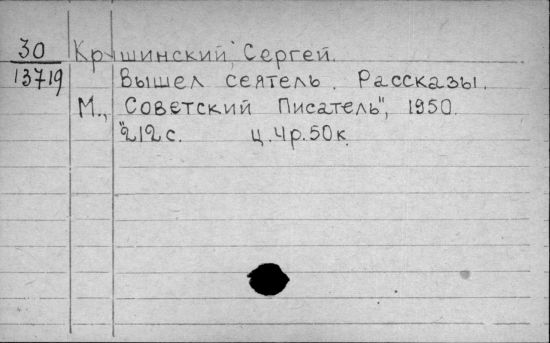 30 Крушинский, Сергей.
13719 Вышел сеятель. Рассказы.
М., "Советский Писатель", 1950.
212 с. ц. 4 р. 50 к.